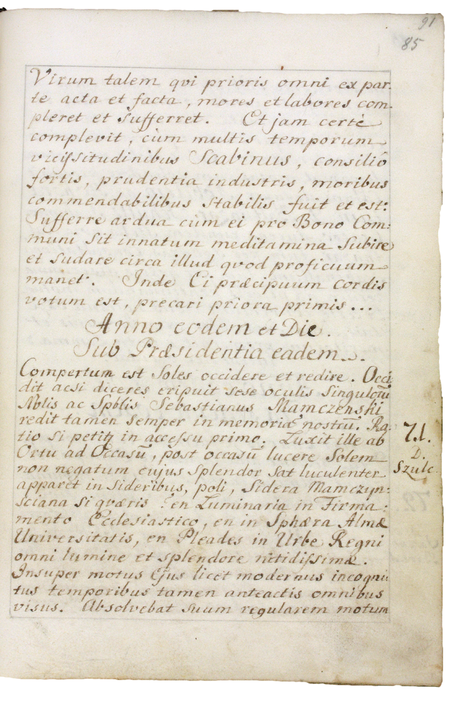 91
85
Virum talem qvi prioris omni ex par:
te acta et facta, mores et labores com
pleret et Sufferret. Et jam certè
complevit, cùm multis temporum
viciſsitudinibus Scabinus, consiliô
fortis, prudentia industris, moribus
commendabilibus Stabilis fuit et est:
Sufferre ardua cùm ei pro Bono Com-
muni Sit innatum meditamina Subire
et Sudare circa illud qvod proficuum
manet. Inde Ei præcipuum cordis
votum est, precari priora primis ...
Anno eodem et Die.
Sub Præsidentia eadem.
Compertum est Soles occidere et redire. Occi
dit acsi diceres eripuit sese oculis Singulorũ
Nblis ac Spblis Sebastianus Mamczenski
redit tamen Semper in memoriã nostrũ. Ra
tio si petitr in accessu primo. Luxit ille ab
Ortu ad Occasũ, post occasũ lucere Solem
non negatum cujus Splendor Sat luculenter
apparet in Sideribus, poli, Sidera Mamczyn-
sciana si quæris? en Luminaria in Firma-
mento Ecclesiastico, en in Sphæra Almæ
Universitatis, en Pleades in Urbe Regni
omni lumine et splendore nitidiſsimæ.
Insuper motus Ejus licet modernus incogni
tus temporibus tamen anteactis omnibus
visus. Absolvebat Suum regularem motum
71.
D.
Szulc